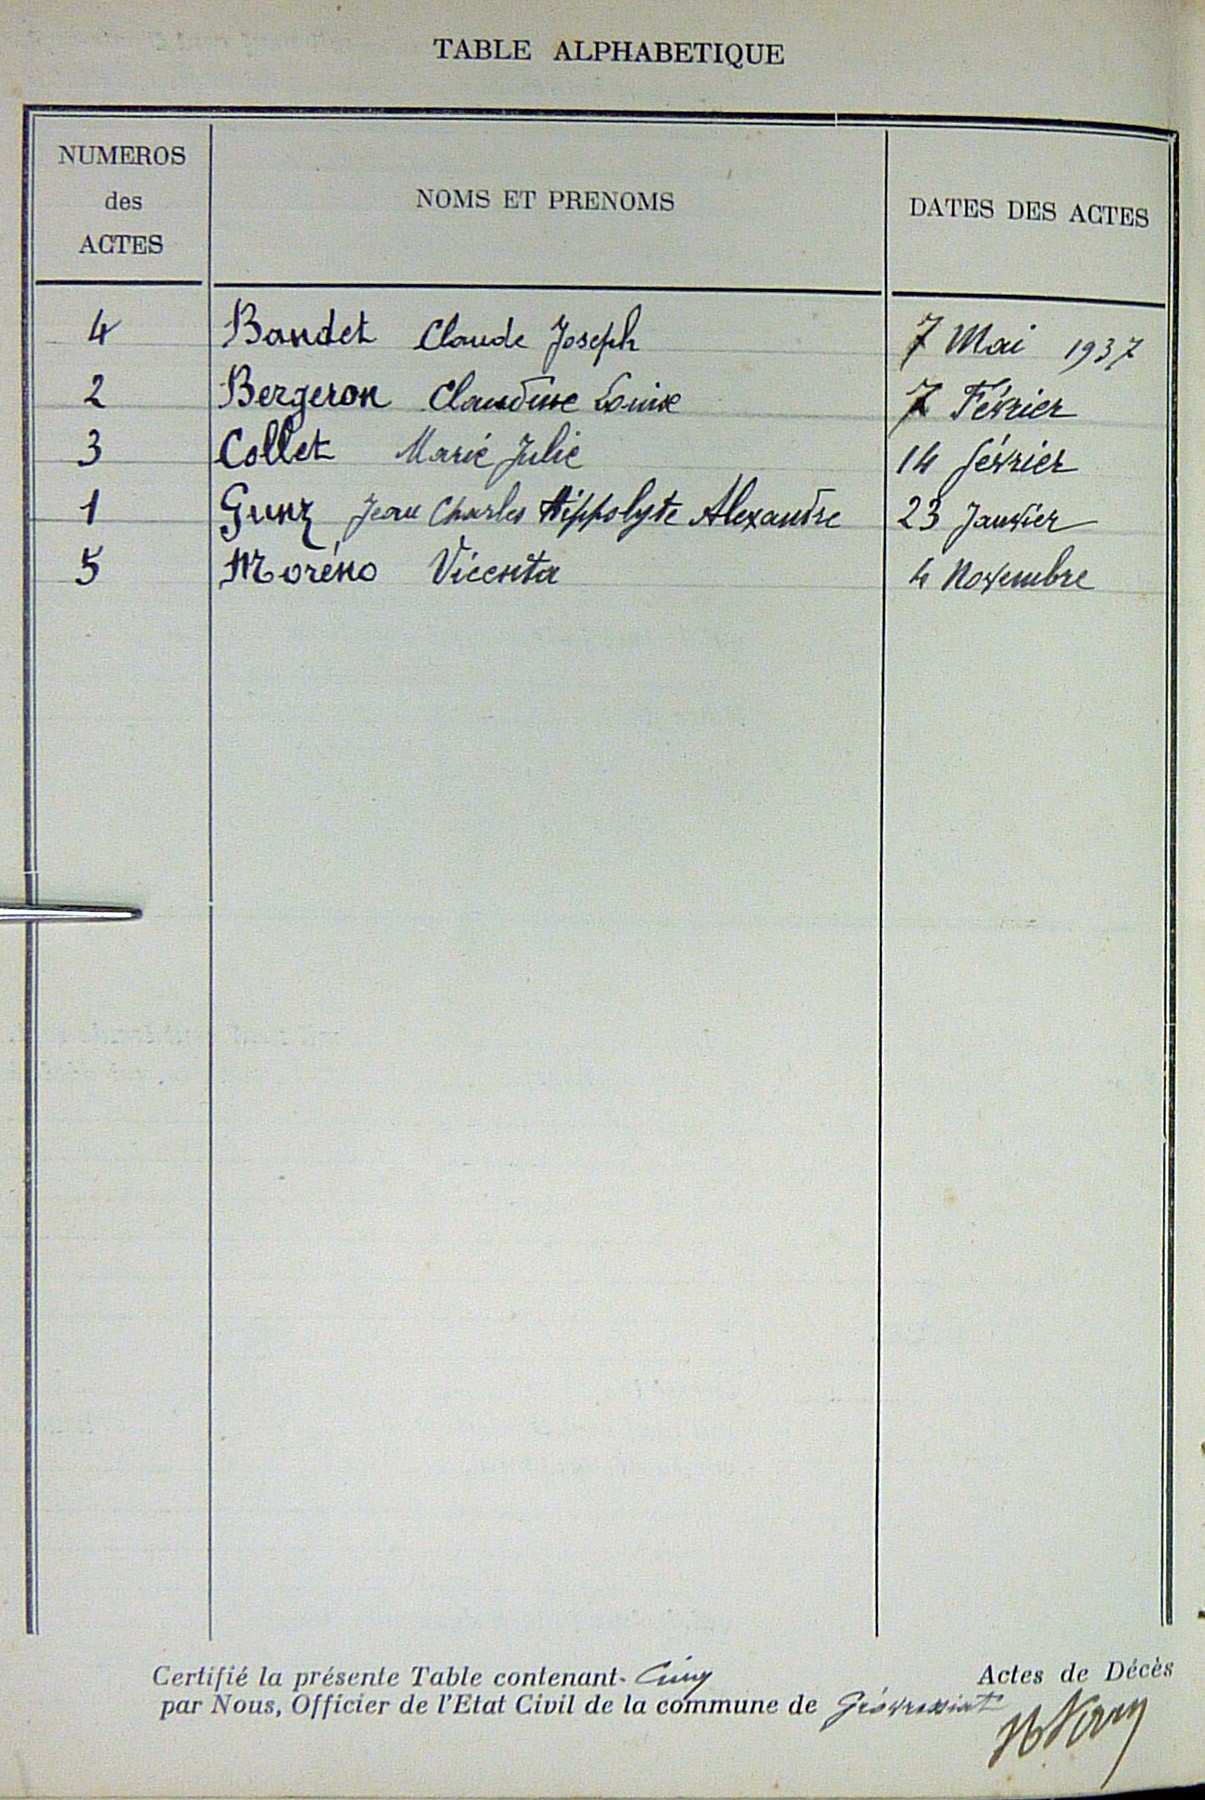 TABLE ALPHABETIQUE
NUMEROS des ACTES NOMS ET PRENOMS DATES DES ACTES
4 Bandet Claude Joseph 7 Mai 1937
2 Bergeron Claudine Louise 7 Février
3 Collet Marie Julie 14 février
1 Gunz Jean Charles Hippolyte Alexandre 23 Janvier
5 Moréno Vicenta 4 Novembre
Certifié la présente Table contenant Cinq Actes de Décès
par Nous, Officier de l'Etat Civil de la commune de